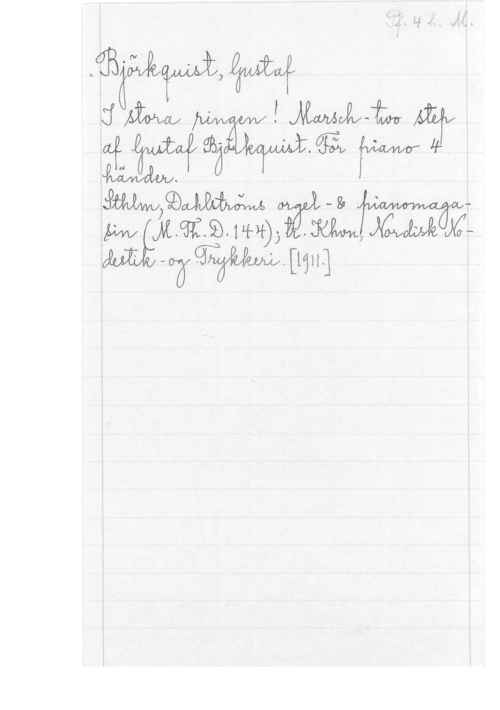 Pf. 4 h. M.
Björkquist, Gustaf
I stora ringen! Marsch-two step
af Gustaf Björkquist. För piano 4
händer.
Sthlm, Dahlströms orgel- & pianomaga-
sin (M. Th. D. 144); tr. Khvn, Nordisk No-
destik- og Trykkeri. [1911.]